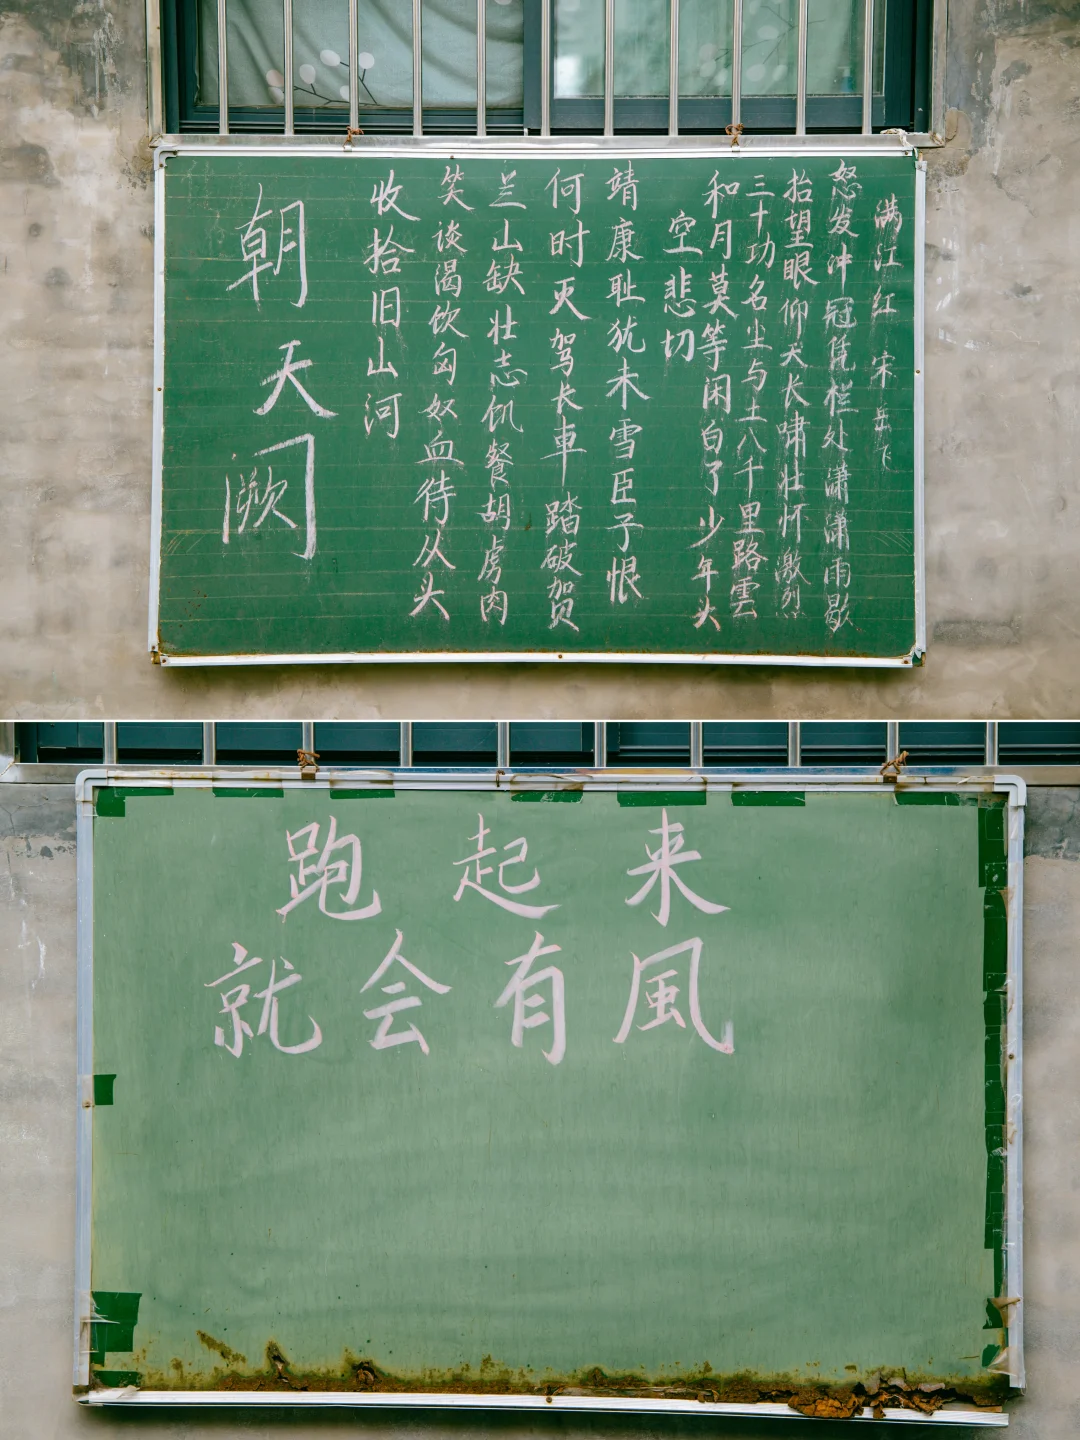 满江红 宋 岳飞
怒发冲冠凭栏处潇潇雨歇
抬望眼仰天长啸壮怀激烈
三十功名尘与土八千里路雲
和月莫等闲白了少年头
空悲切
靖康耻犹未雪臣子恨
何时灭驾长車踏破贺
兰山缺壮志饥餐胡虏肉
笑谈渴饮匈奴血待从头
收拾旧山河
朝天阙
跑起来
就会有風